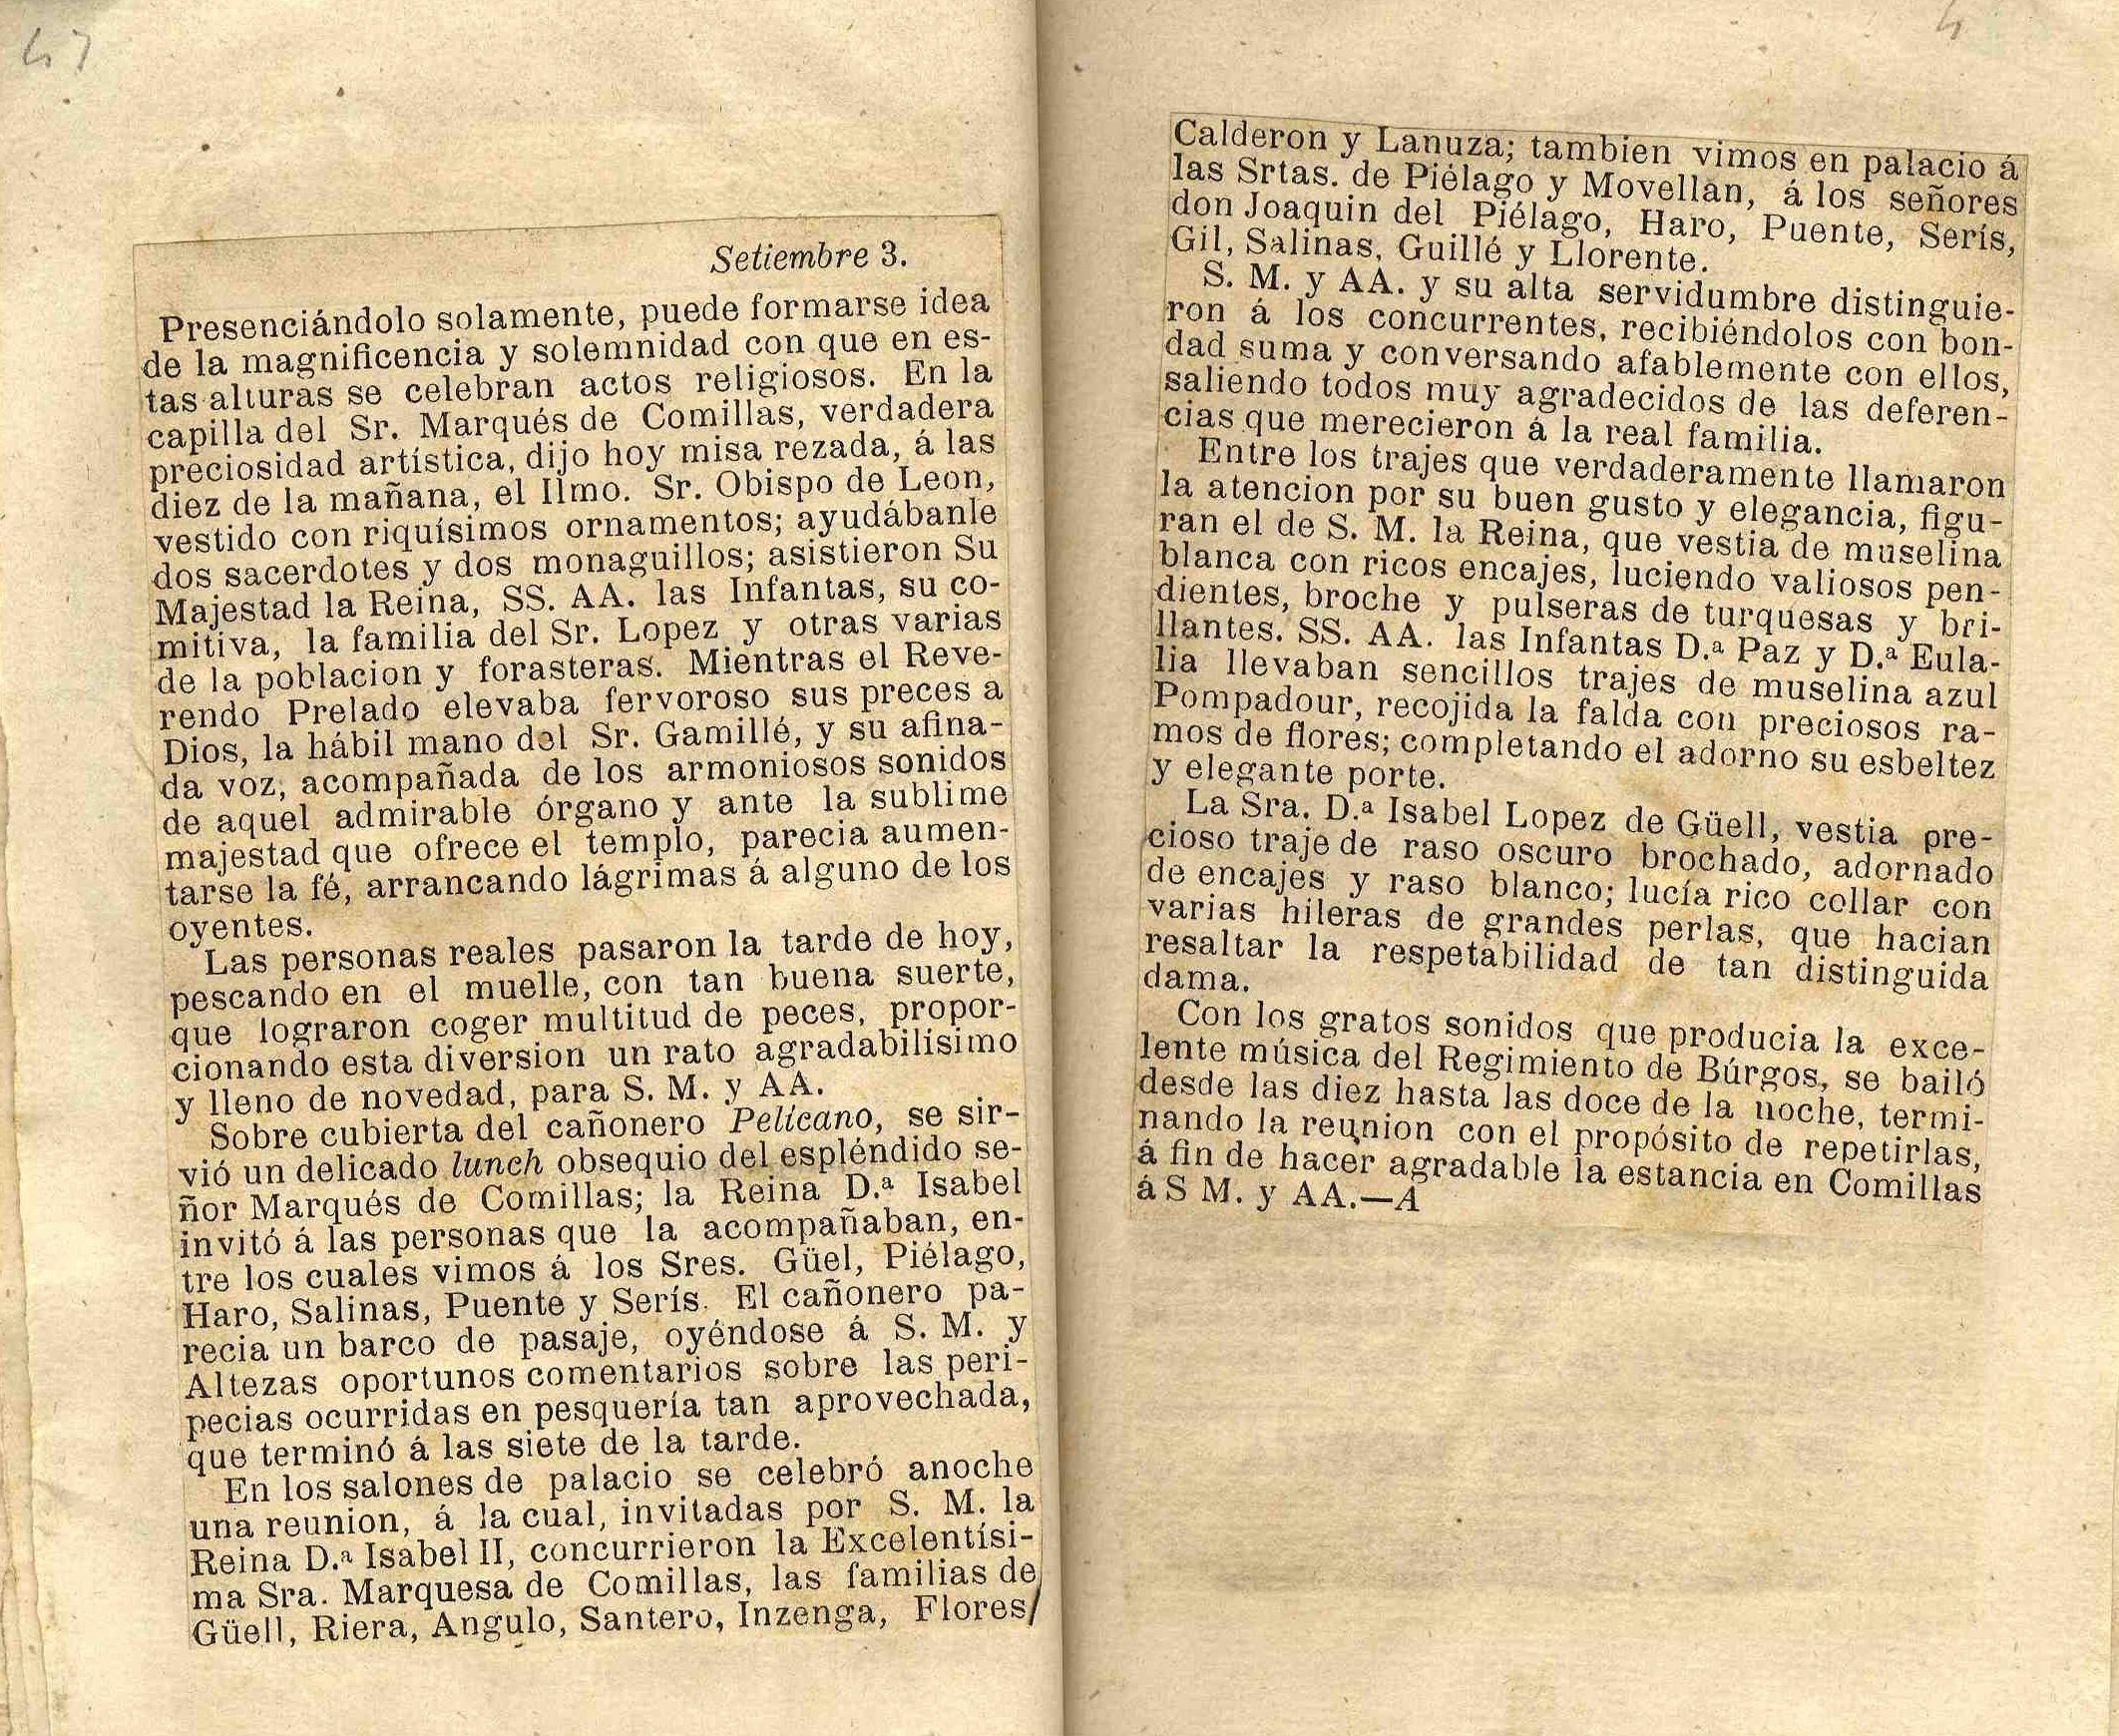 47
Setiembre 3.
Presenciándolo solamente, puede formarse idea
de la magnificencia y solemnidad con que en es-
tas alturas se celebran actos religiosos. En la
capilla del Sr. Marqués de Comillas, verdadera
preciosidad artística, dijo hoy misa rezada, á las
diez de la mañana, el Ilmo. Sr. Obispo de Leon,
vestido con riquísimos ornamentos; ayudábanle
dos sacerdotes y dos monaguillos; asistieron Su
Majestad la Reina, SS. AA. las Infantas, su co-
mitiva, la familia del Sr. Lopez y otras varias
de la poblacion y forasteras. Mientras el Reve-
rendo Prelado elevaba fervoroso sus preces a
Dios, la hábil mano del Sr. Gamillé, y su afina-
da voz, acompañada de los armoniosos sonidos
de aquel admirable órgano y ante la sublime
majestad que ofrece el templo, parecia aumen-
tarse la fé, arrancando lágrimas á alguno de los
oyentes.
Las personas reales pasaron la tarde de hoy,
pescando en el muelle, con tan buena suerte,
que lograron coger multitud de peces, propor-
cionando esta diversion un rato agradabilísimo
y lleno de novedad, para S. M. y AA.
Sobre cubierta del cañonero Pelícano, se sir-
vió un delicado lunch obsequio del espléndido se-
ñor Marqués de Comillas; la Reina D.ª Isabel
invitó á las personas que la acompañaban, en-
tre los cuales vimos á los Sres. Güel, Piélago,
Haro, Salinas, Puente y Serís. El cañonero pa-
recia un barco de pasaje, oyéndose á S. M. y
Altezas oportunos comentarios sobre las peri-
pecias ocurridas en pesquería tan aprovechada,
que terminó á las siete de la tarde.
En los salones de palacio se celebró anoche
una reunion, á la cual, invitadas por S. M. la
Reina D.ª Isabel II, concurrieron la Excelentísi-
ma Sra. Marquesa de Comillas, las familias de
Güell, Riera, Angulo, Santero, Inzenga, Flores/
Calderon y Lanuza; tambien vimos en palacio á
las Srtas. de Piélago y Movellan, á los señores
don Joaquin del Piélago, Haro, Puente, Serís,
Gil, Salinas, Guillé y Llorente.
S. M. y AA. y su alta servidumbre distinguie-
ron á los concurrentes, recibiéndolos con bon-
dad suma y conversando afablemente con ellos,
saliendo todos muy agradecidos de las deferen-
cias que merecieron á la real familia.
Entre los trajes que verdaderamente llamaron
la atencion por su buen gusto y elegancia, figu-
ran el de S. M. la Reina, que vestia de muselina
blanca con ricos encajes, luciendo valiosos pen-
dientes, broche y pulseras de turquesas y bri-
llantes. SS. AA. las Infantas D.ª Paz y D.ª Eula-
lia llevaban sencillos trajes de muselina azul
Pompadour, recojida la falda con preciosos ra-
mos de flores; completando el adorno su esbeltez
y elegante porte.
La Sra. D.ª Isabel Lopez de Güell, vestia pre-
cioso traje de raso oscuro brochado, adornado
de encajes y raso blanco; lucía rico collar con
varias hileras de grandes perlas, que hacian
resaltar la respetabilidad de tan distinguida
dama.
Con los gratos sonidos que producia la exce-
lente música del Regimiento de Búrgos, se bailó
desde las diez hasta las doce de la noche, termi-
nando la reunion con el propósito de repetirlas,
á fin de hacer agradable la estancia en Comillas
á S M. y AA.—A